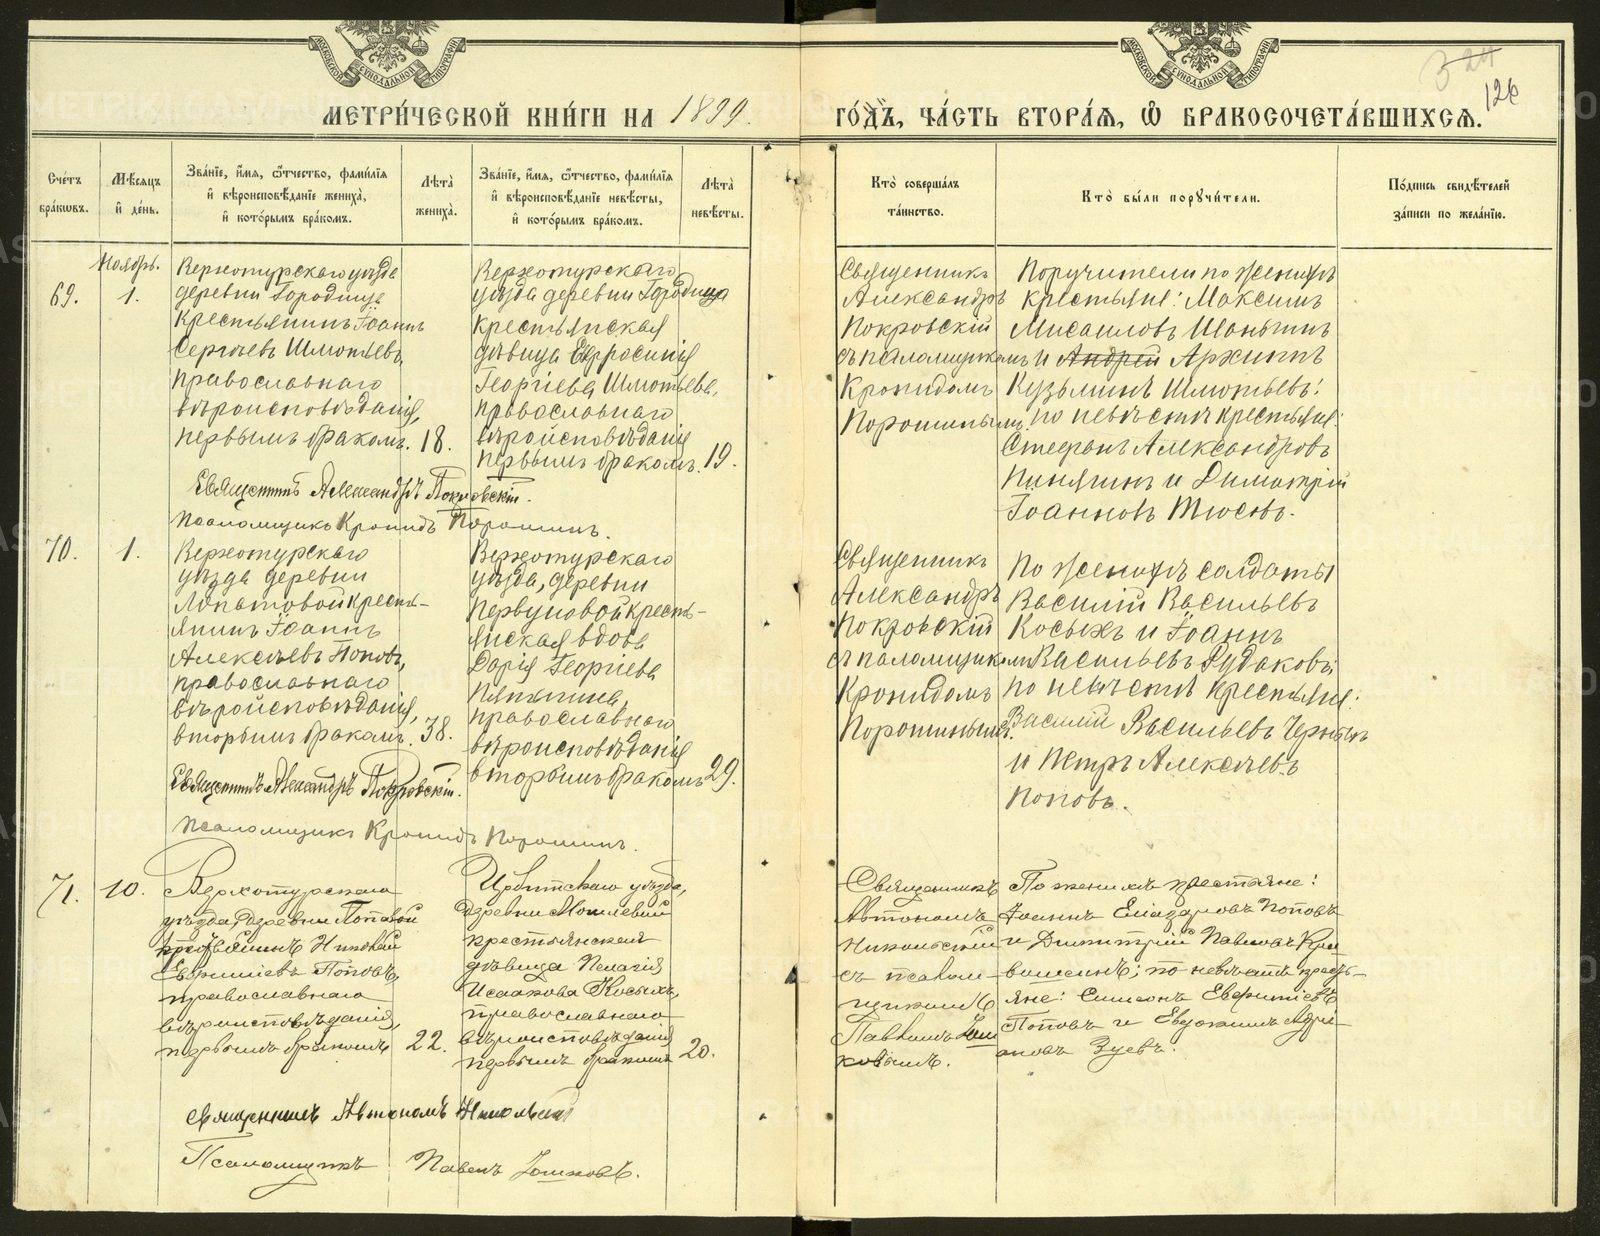 МЕТРИ́ЧЕСКОЙ КНИ́ГИ НА 1899.
ГО́ДЪ, ЧА́СТЬ ВТОРА́Я, Ѽ БРАКОСОЧЕТА́ВШИХСЯ.
126
Сче́тъ бра́ковъ.
Мѣ́сяцъ и́ де́нь.
Зва́нїе, и́мя, ѻ́тчество, фами́лїя и́ вѣроисповѣ́данїе жениха̀, и́ кото́рымъ бра́комъ.
Лѣта̀ жениха̀.
Зва́нїе, и́мя, ѻ́тчество, фами́лїя и́ вѣроисповѣ́данїе невѣ́сты, и́ кото́рымъ бра́комъ.
Лѣта̀ невѣ́сты.
Кто̀ соверша́лъ та́инство.
Кто̀ бы́ли поручи́тели.
По́дпись свидѣ́телей за́писи по жела́нїю.
69.
Ноябрь.
1.
Верхотурскаго уѣзда
деревни Городище
крестьянинъ Іоаннъ
Сергѣевъ Шмотьевъ,
православнаго
вѣроисповѣданія,
первымъ бракомъ.
18.
Верхотурскаго
уѣзда деревни Городища
крестьянская
дѣвица Евфросинія
Георгіева Шмотьева,
православнаго
вѣроисповѣданія
первымъ бракомъ.
19.
Священникъ
Александръ
Покровскій
съ псаломщикомъ
Кронидомъ
Порошинымъ.
Поручители по женихѣ
крестьяне: Максимъ
Мисаиловъ Шаньгинъ
и Андрей Архипъ
Кузьминъ Шмотьевъ:
по невѣстѣ крестьяне:
Стефанъ Александровъ
Пинягинъ и Димитрій
Іоанновъ Тюсовъ.
Священникъ Александръ Покровскій.
Псаломщикъ Кронидъ Порошинъ.
70.
1.
Верхотурскаго
уѣзда деревни
Лопатовой крест-
янинъ Іоаннъ
Алексѣевъ Поповъ,
православнаго
вѣроисповѣданія,
вторымъ бракомъ.
38.
Верхотурскаго
уѣзда, деревни
Первуновой кресть-
янская вдова
Дарія Георгіева
православнаго
вѣроисповѣданія
вторымъ бракомъ
29.
Священникъ
Александръ
Покровскій
съ псаломщикомъ
Кронидомъ
Порошинымъ.
По женихѣ солдаты
Василій Васильевъ
Косыхъ и Іоаннъ
Васильевъ Рудаковъ;
по невѣстѣ крестьяне:
Василій Васильевъ Черныхъ
и Петръ Алексѣевъ
Поповъ.
Священникъ Александръ Покровскій.
Псаломщикъ Кронидъ Порошинъ.
71.
10.
Верхотурскаго
уѣзда, деревни Поповой
крестьянинъ Николай
Евфиміевъ Поповъ,
православнаго
вѣроисповѣданія,
первымъ бракомъ
22.
Ирбитскаго уѣзда,
деревни Мошлевой
крестьянская
дѣвица Пелагія
Исаакова Косыхъ,
православнаго
вѣроисповѣданія
первымъ бракомъ
20.
Священникъ
Автономъ
Никольскій
съ псалом-
щикомъ
Павломъ
ковымъ.
По женихѣ крестьяне:
Іоаннъ Еліазаровъ Поповъ
и Димитрій Павловъ Кри-
вошеинъ; по невѣстѣ кресть-
яне: Симеонъ Евфиміевъ
Поповъ и Евдокимъ Адрі-
ановъ Зуевъ.
Священникъ Автономъ Никольскій
Псаломщикъ Павелъ